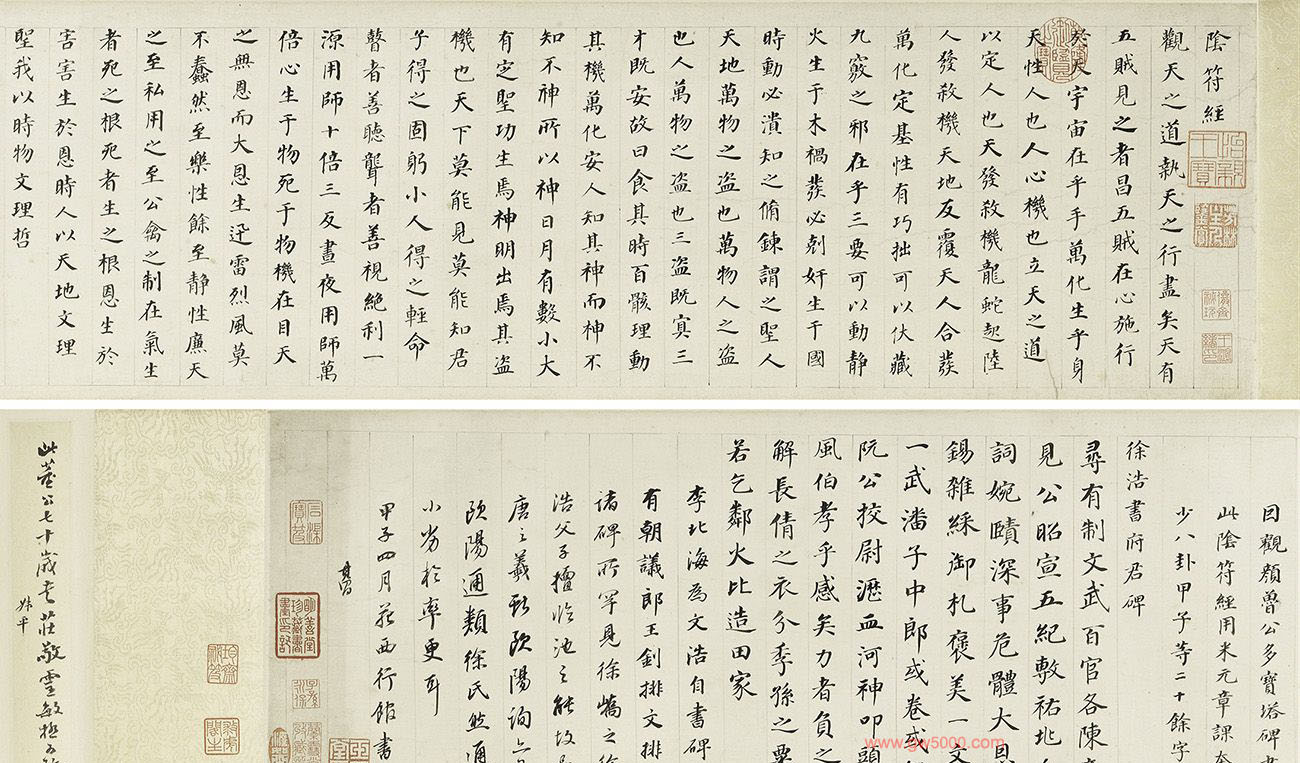 陰符經
觀天之道執天之行盡矣天有
五賊見之者昌五賊在心施行
於天宇宙在乎手萬化生乎身
天性人也人心機也立天之道
以定人也天發殺機龍蛇起陸
人發殺機天地反覆天人合發
萬化定基性有巧拙可以伏藏
九竅之邪在乎三要可以動靜
火生于木禍發必剋奸生于國
時動必潰知之脩鍊謂之聖人
天地萬物之盜也萬物人之盜
也人萬物之盜也三盜既冥三
才既安故曰食其時百骸理動
其機萬化安人知其神而神不
知不神所以神日月有數小大
有定聖功生焉神明出焉其盜
機也天下莫能見莫能知君
子得之固躬小人得之輕命
瞽者善聽聾者善視絕利一
源用師十倍三反晝夜用師萬
倍心生于物死于物機在目天
之無恩而大恩生迅雷烈風莫
不蠢然至樂性餘至靜性廉天
之至私用之至公禽之制在氣生
者死之根死者生之根恩生於
害害生於恩時人以天地文理
聖我以時物文理哲
因觀顏魯公多寶塔碑書
此陰符經用米元章課本
少八卦甲子等二十餘字
徐浩書府君碑
尋有制文武百官各陳
見公昭宣五紀敷祐北
詞婉賾深事危體大
錫雜綵御札褒美一文
一武潘子中郎或卷或
阮公挍尉瀝血河神叩頭
風伯孝乎感矣力者負之
解長倩之衣分季孫之粟
若乞鄰火比造田家
李北海為文浩自書碑
有朝議郎王釗排文排
諸碑所罕見徐嶠之徐
浩父子擅臨池之能故
唐之羲獻歐陽詢
歐陽通類徐氏然通
小劣於率更耳
甲子四月苑西行館書
其昌
明善堂珍藏書畫印記
此董公七十歲書莊敬靈敏極
www.gw5000.com